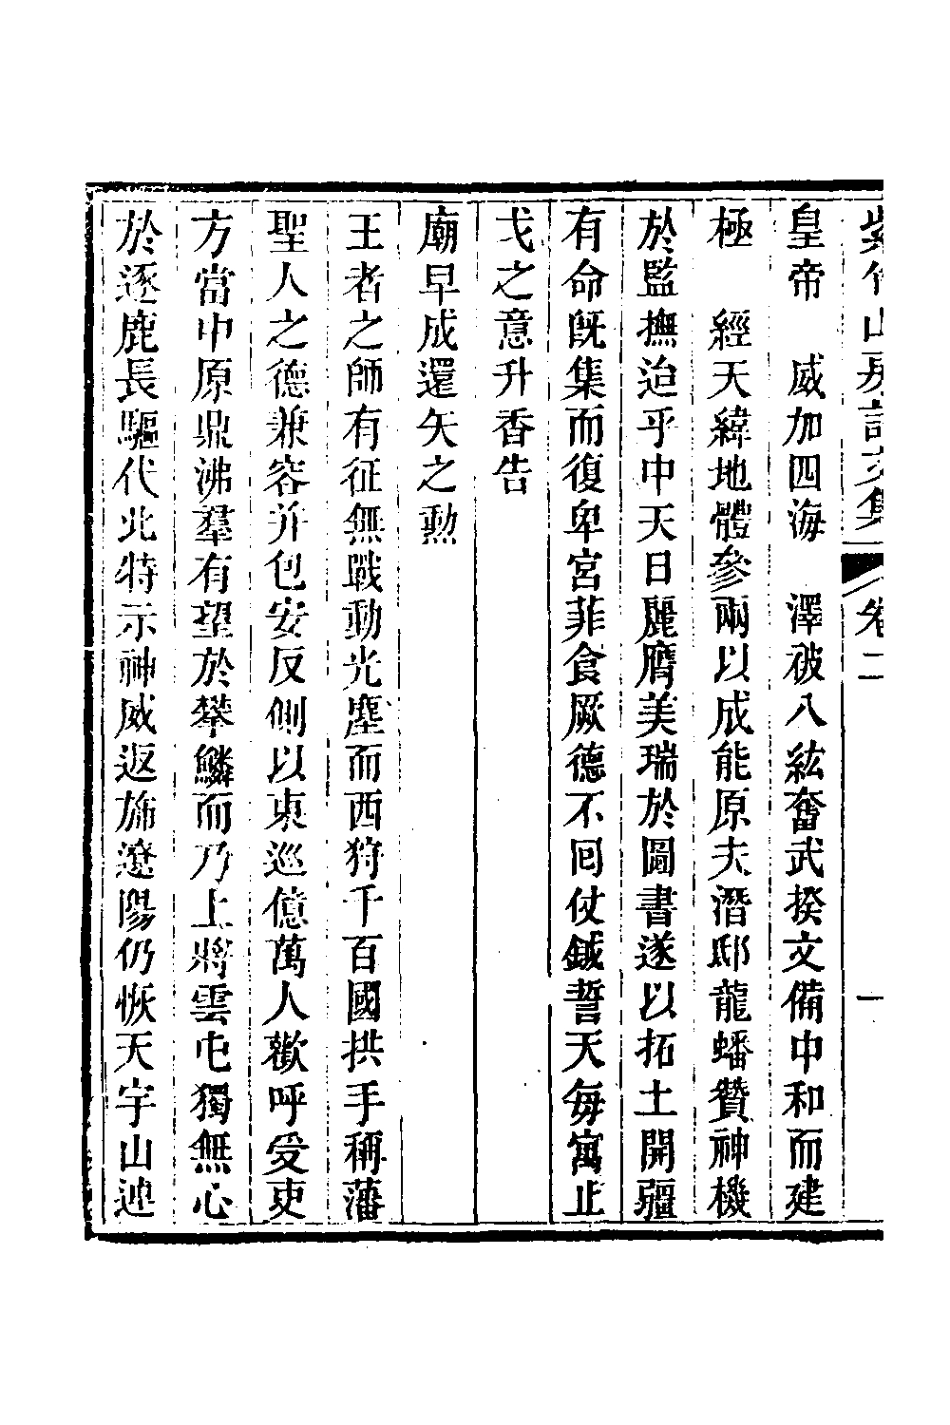 紫竹山房詩文集 卷二 一
皇帝 威加四海 澤被八紘奮武揆文備中和而建
極 經天緯地體參兩以成能原夫潛邸龍蟠贊神機
於監撫迨乎中天日麗膺美瑞於圖書遂以拓土開疆
有命旣集而復卑宮菲食厥德不回仗鉞誓天每寓止
戈之意升香告
廟早成還矢之勲
王者之師有征無戰動光塵而西狩千百國拱手稱藩
聖人之德兼容并包安反側以東巡億萬人歡呼受吏
方當中原鼎沸羣有望於攀鱗而乃上將雲屯獨無心
於逐鹿長驅代北特示神威返旆遼陽仍恢天宇山連